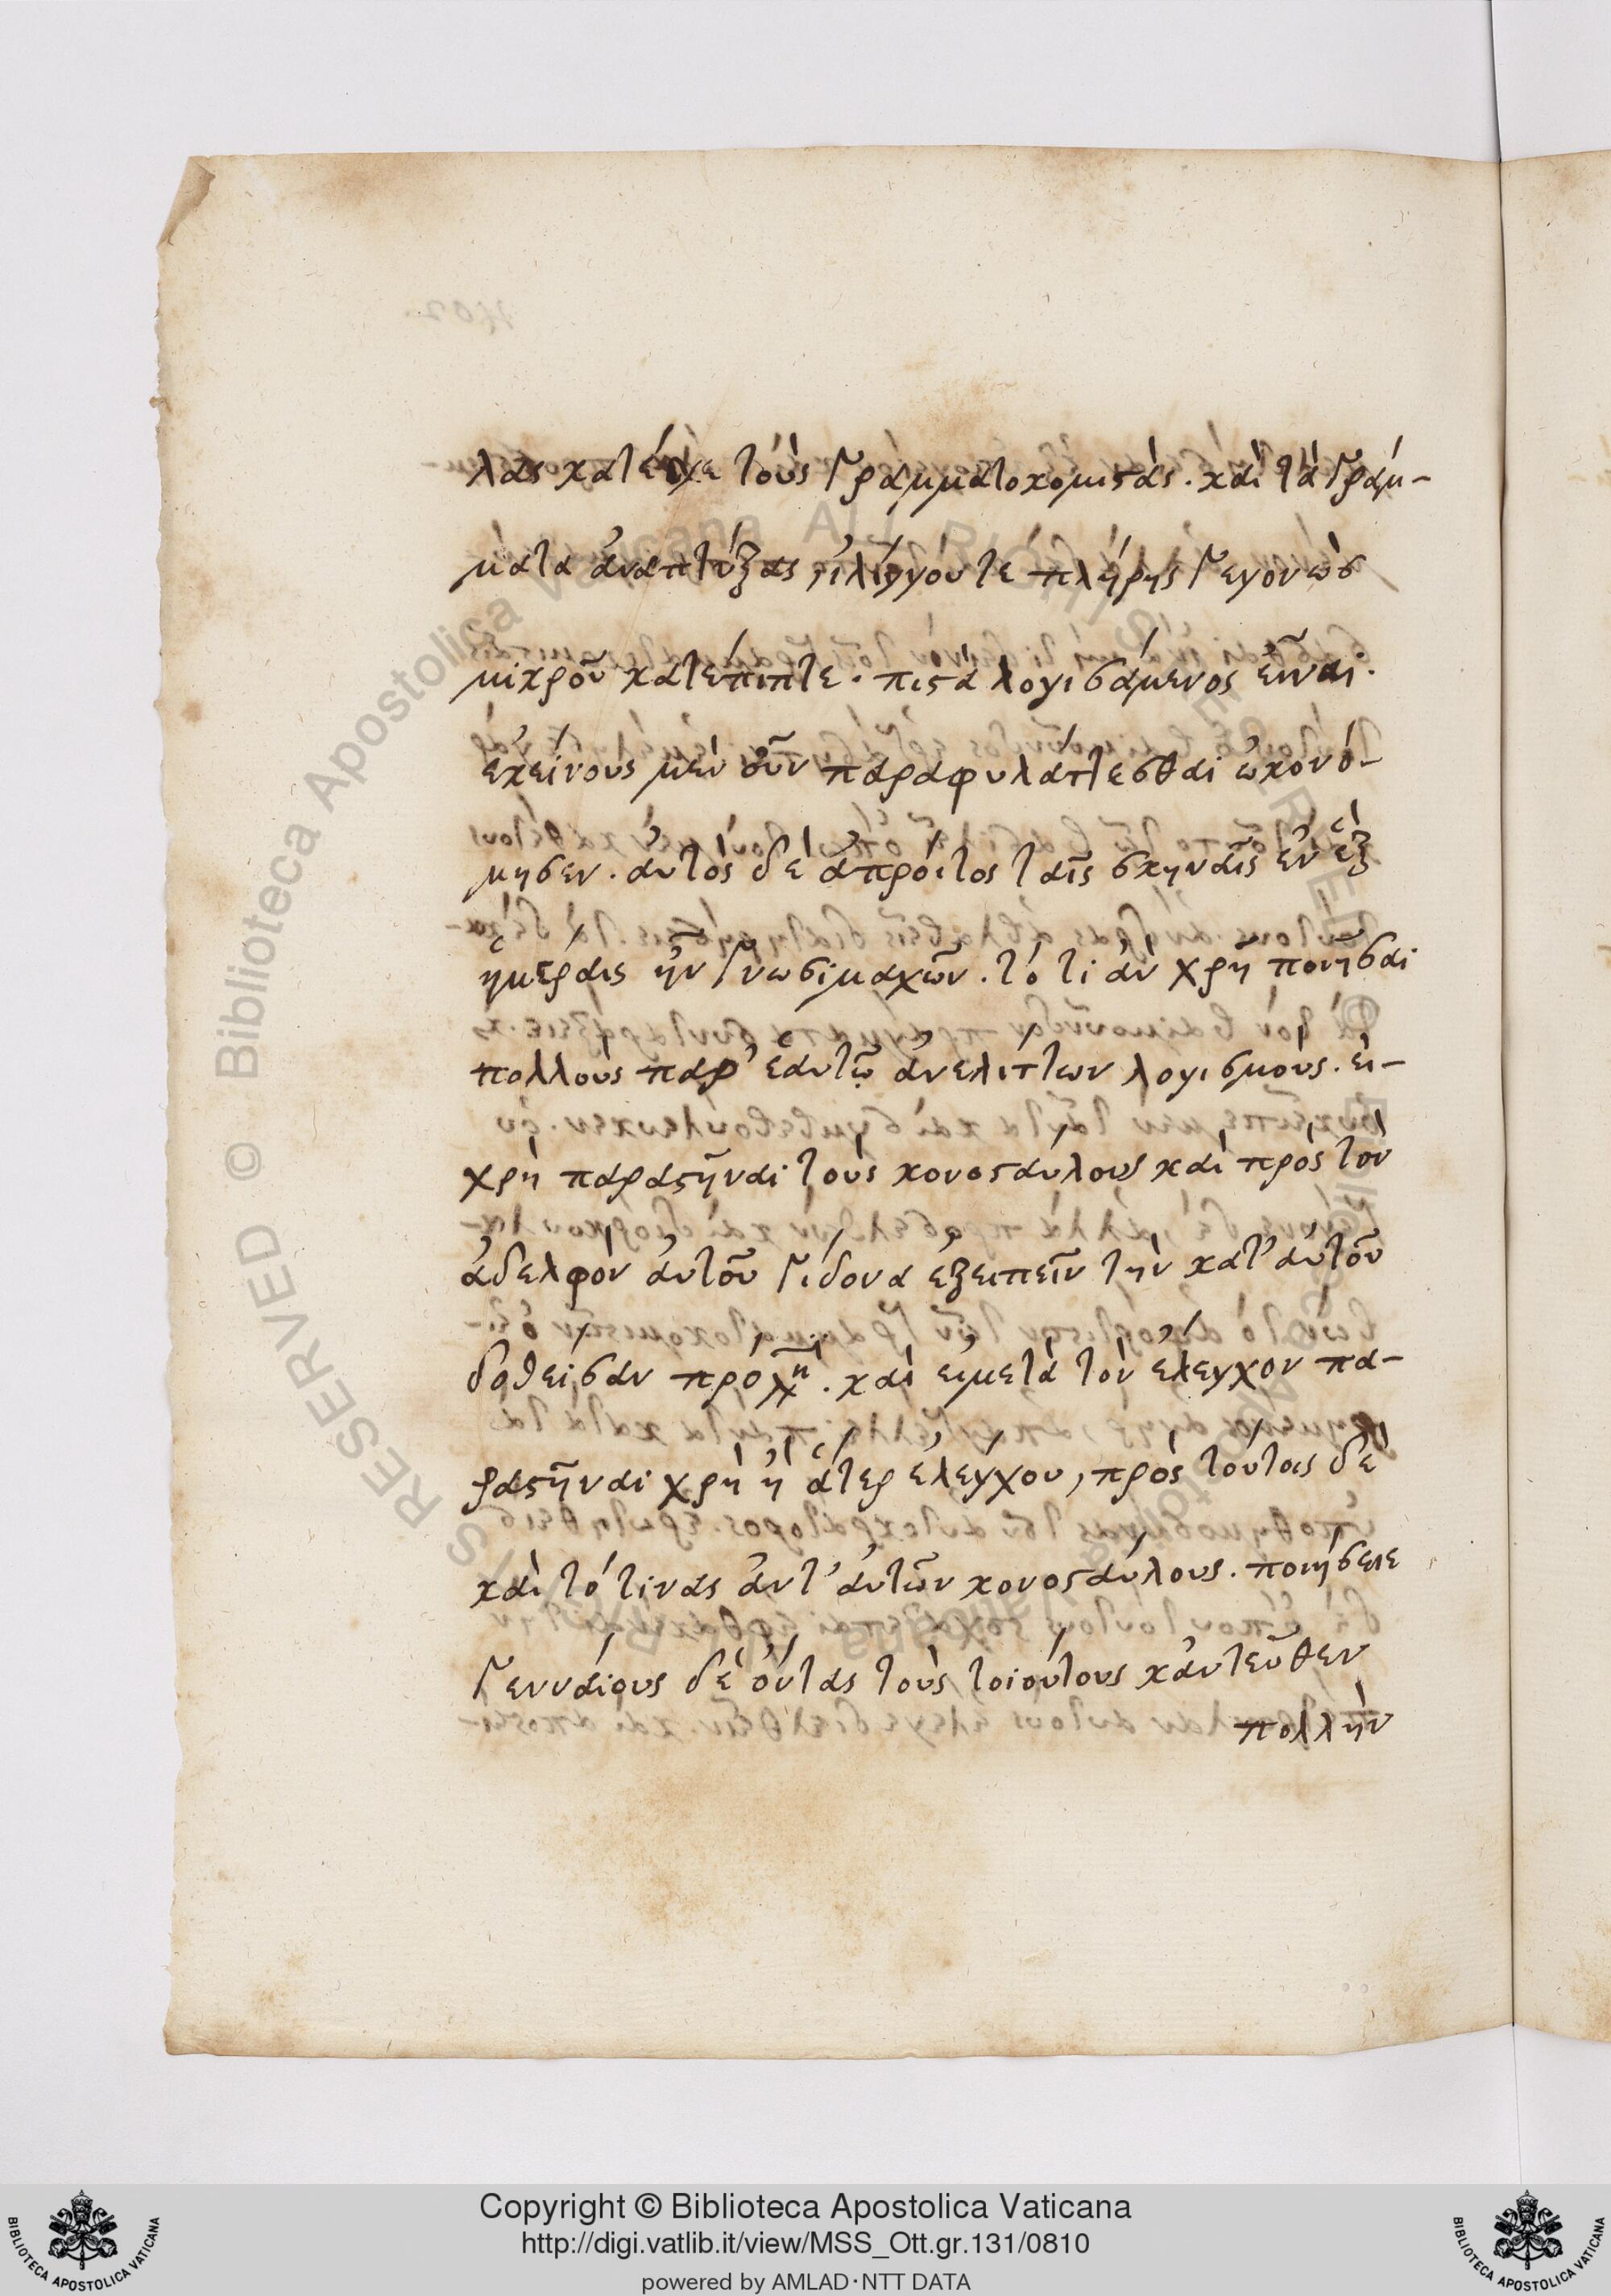 λας κατεῖχε τοὺς γραμματοκομιστάς. καὶ τὰ γράμ-
ματα ἀναπτύξας, ἰλίγγου τὲ πλήρης γεγονὼσ
μικροῦ κατέπιπτε. πιστὰ λογισάμενος εἶναι.
ἐκείνους μὲν οὖν παραφυλάττεσθαι ὠκονό-
μησεν. αὐτὸς δὲ ἀπρόϊτος ταῖς σκηναῖς ἐν ἓξ
ἡμέραις ἦν γνωσιμαχῶν. τὸ τί ἂν χρῆ ποιῆσαι
πολλοὺς παρ' ἑαυτῷ ἀνελίττων λογισμοὺς. εἰ-
χρὴ παραστῆναι τοὺς κονοσταύλους καὶ πρὸς τὸν
ἀδελφὸν αὐτοῦ γίδονα ἐξειπεῖν τὴν κατ' αὐτοῦ
δοθεῖσαν προλχὴ. καὶ εἰ μετὰ τὸν ἔλεγχον πα-
ραστῆναι χρὴ ἢ ἅτερ ἐλέγχου, πρὸς τούτοις δὲ
καὶ τὸ τίνας ἀντ' αὐτῶν κονοσταύλους. ποιήσειε
γενναίους δὲ ὄντας τοὺς τοιούτους κἀντεῦθεν
πολλὴν
Copyright © Biblioteca Apostolica Vaticana
http://digi.vatlib.it/view/MSS_Ott.gr.131/0810
powered by AMLAD·NTT DATA
BIBLIOTECA APOSTOLICA VATICANA
BIBLIOTECA APOSTOLICA VATICANA